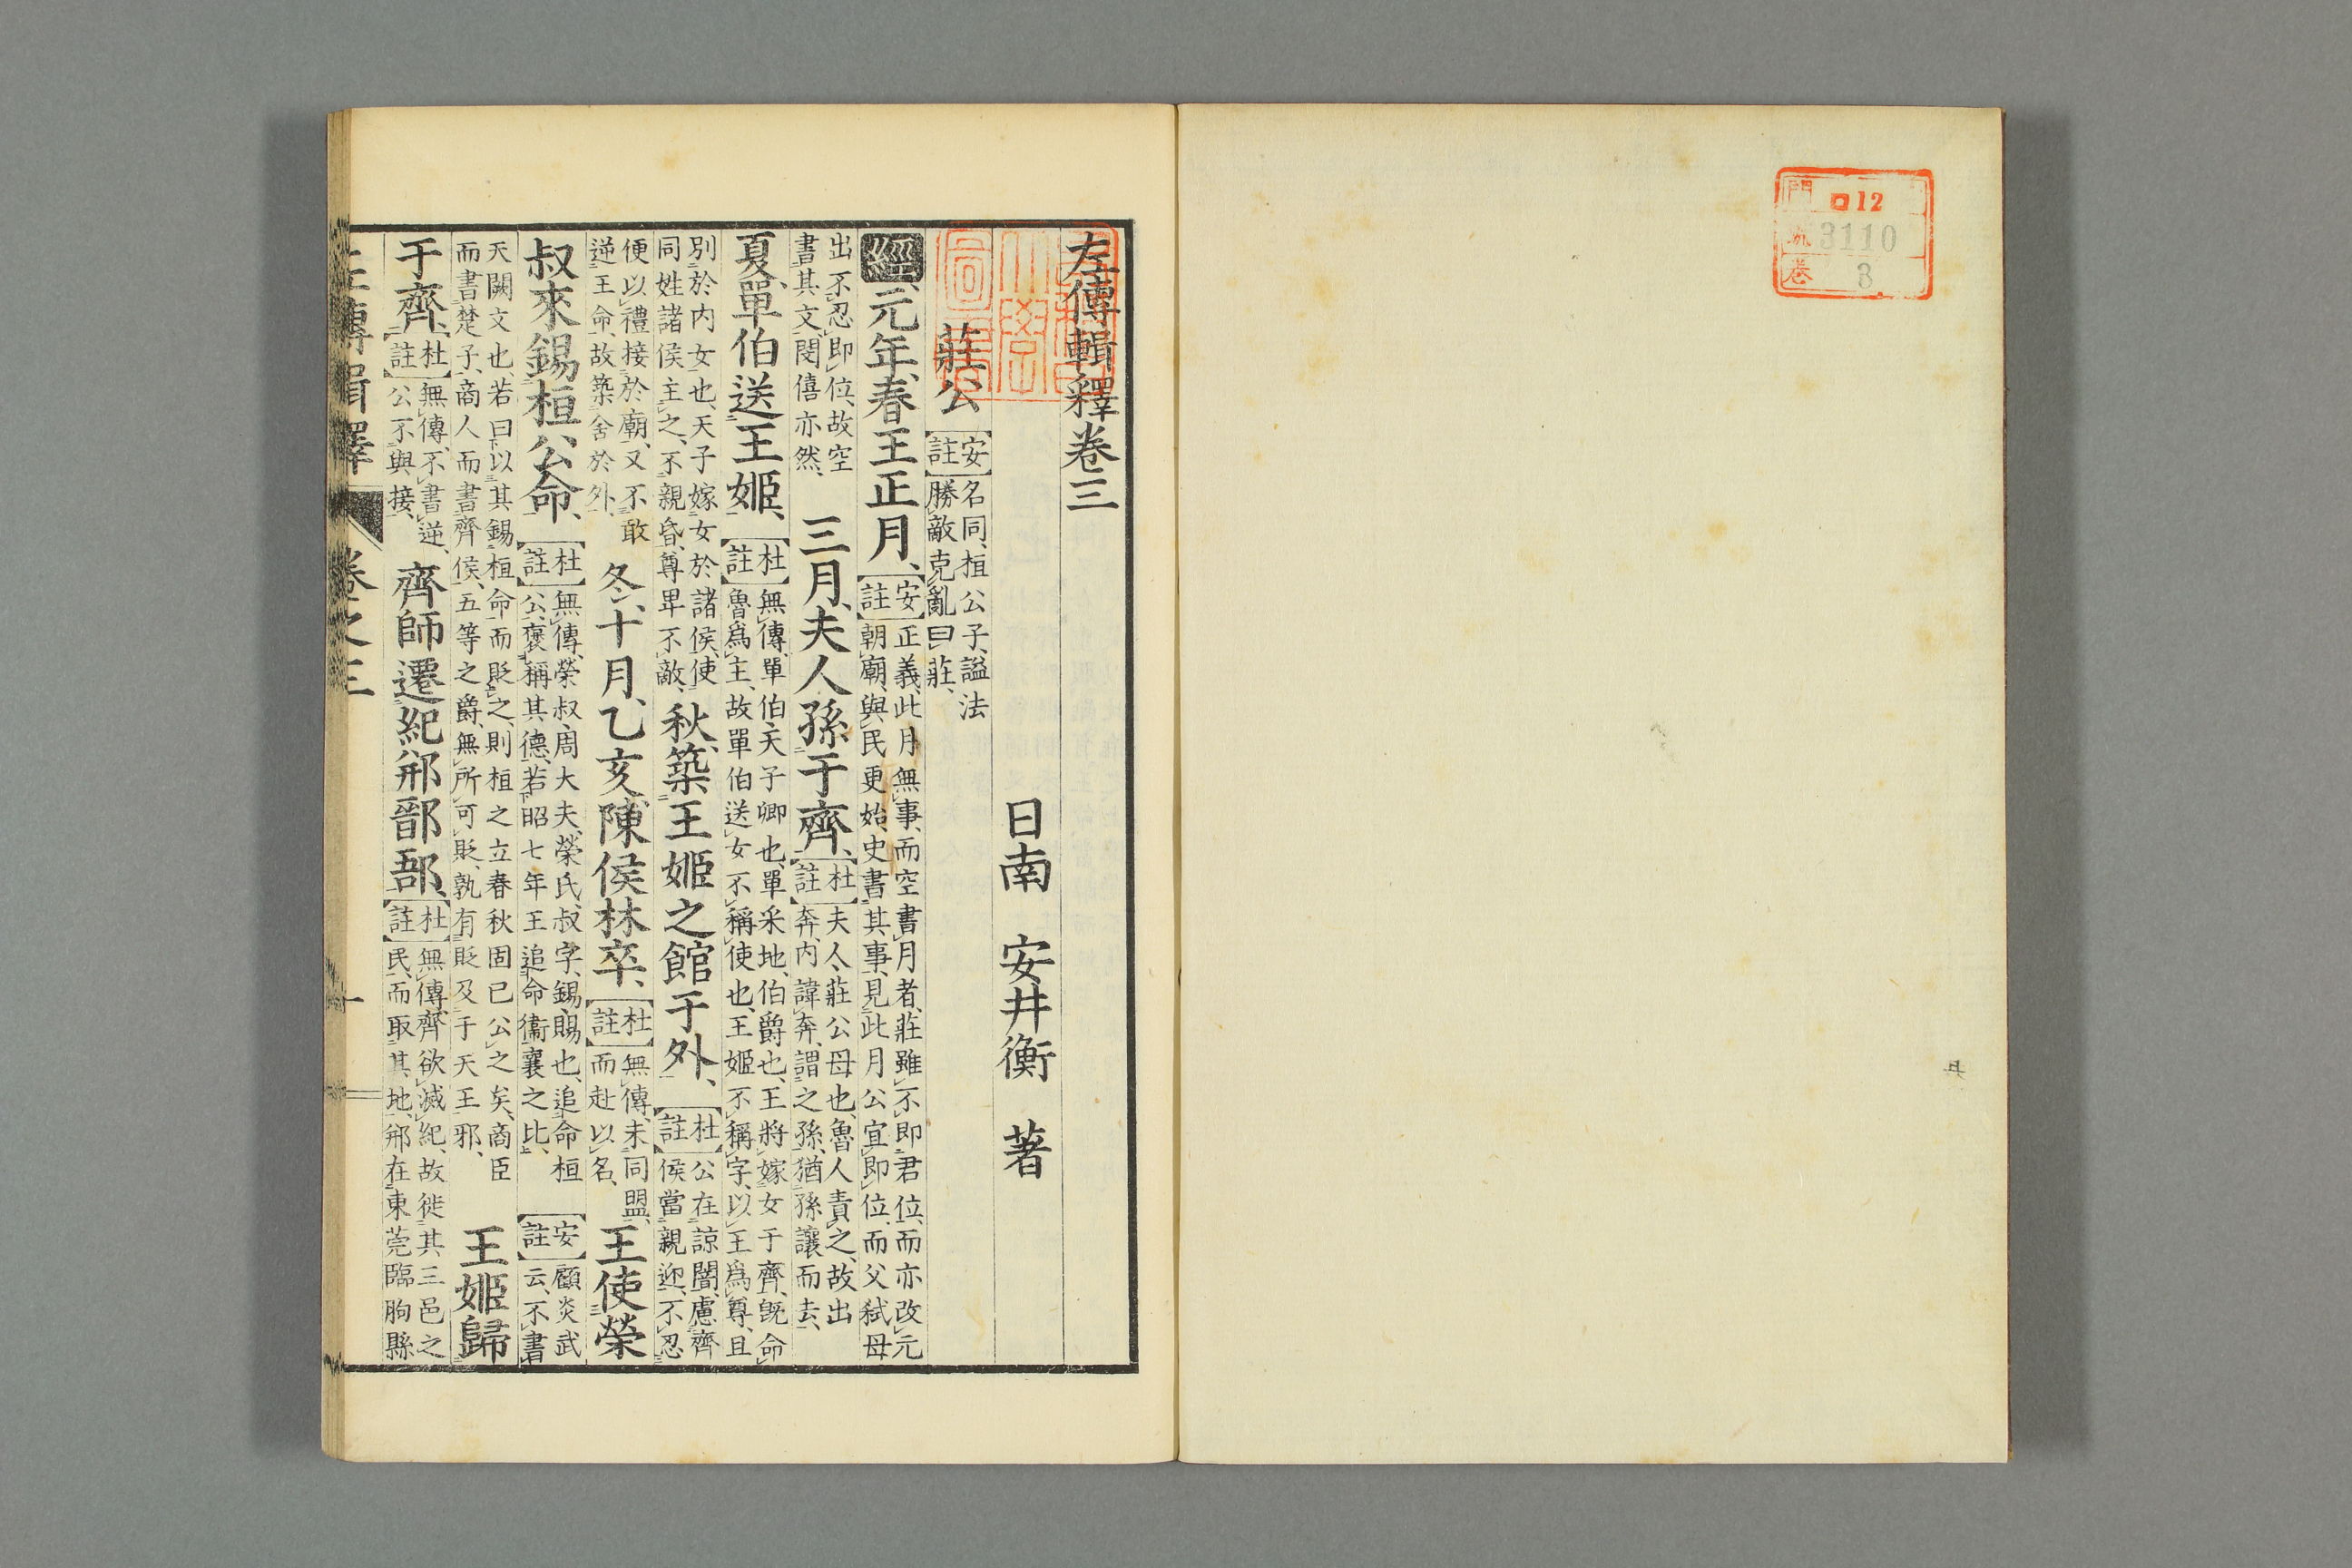 門 ロ12
號 3110
巻 3
左傳輯釋卷三
日南 安井衡 著
莊公【安註】名同、桓公子、謚法勝敵克亂曰莊、
經元年、春王正月、【安註】正義、此月無事、而空書月者、莊雖不即君位、而亦改元朝廟、與民更始、史書其事、見此月公宜即位、而父弒母
出不忍即位、故空書其文、閔僖亦然、 三月、夫人孫于齊、【杜註】夫人、莊公母也、魯人責之、故出奔、内諱奔、謂之孫、猶孫讓而去、
夏、單伯送王姬、【杜註】無傳、單伯、天子卿也、單采地、伯爵也、王將嫁女于齊、既命魯爲主、故單伯送女、不稱使也、王姬不稱字、以王爲尊、且
別於内女也、天子嫁女於諸侯、使同姓諸侯主之、不親昏、尊卑不敵、 秋、築王姬之館于外、【杜註】公在諒闇、慮齊侯當親迎、不忍
便以禮接於廟、又不敢逆王命、故築舍於外、 冬、十月、乙亥、陳侯林卒、【杜註】無傳、未同盟、而赴以名、 王使榮
叔來錫桓公命、【杜註】無傳、榮叔、周大夫、榮氏、叔字、錫、賜也、追命桓公、褒稱其德、若昭七年王追命衞襄之比、【安註】顧炎武云、不書
天闕文也、若曰以其錫桓命而貶之、則桓之立春秋固已公之矣、商臣而書楚子、商人而書齊侯、五等之爵、無所可貶、孰有貶及于天王邪、 王姬歸
于齊、【杜註】無傳、不書逆、公不與接、 齊師遷紀郱鄑郚、【杜註】無傳、齊欲滅紀、故徙其三邑之民、而取其地、郱在東莞臨朐縣
左傳輯釋 卷之三 一